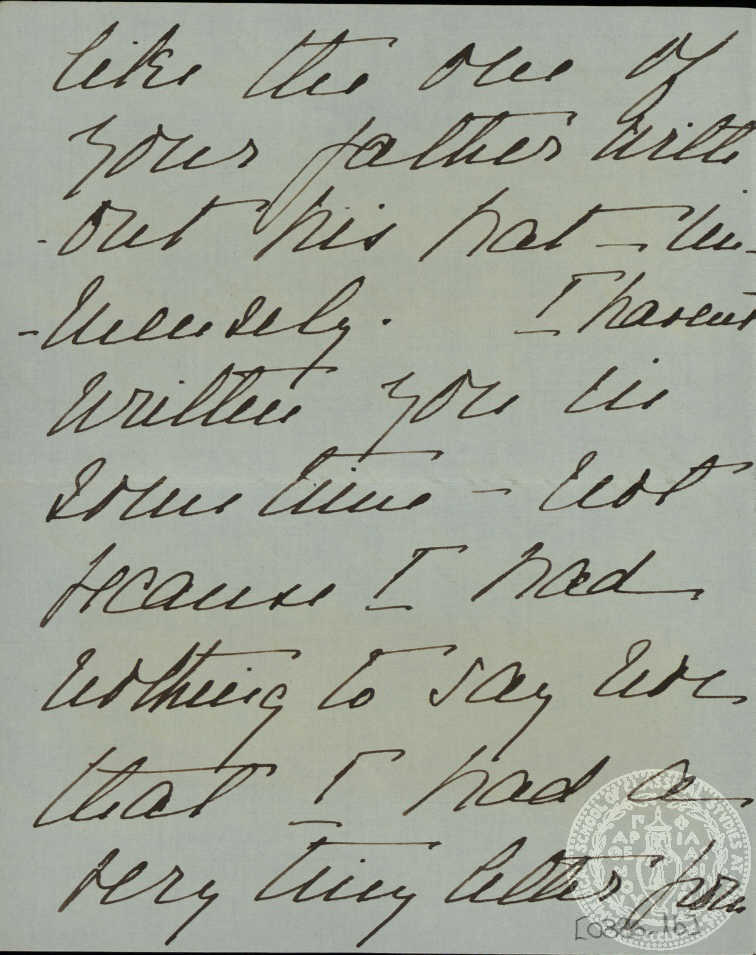 like the one of
your father with
-out his hat - im-
-mensely. I havent
written you in
sometime - not
because I had
nothing to say nor
that I had a
very tiny letter from
SCHOOL OF CLASSICAL STUDIES AT
[0386.1b]